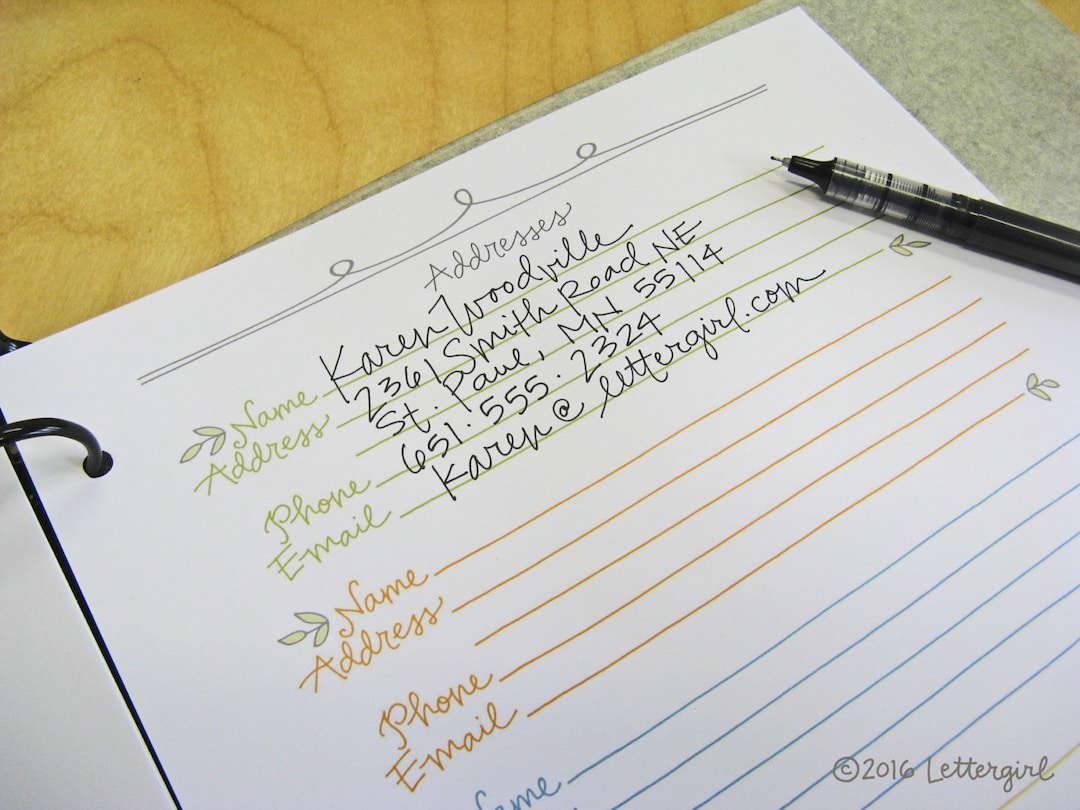 Addresses
Name Karen Woodville
Address 2361 Smith Road NE
St. Paul, MN 55114
Phone 651.555.2324
Email Karen@lettergirl.com
Name
Address
Phone
Email
Name
©2016 Lettergirl